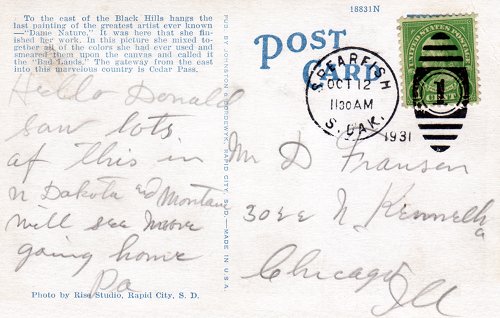 18831N
To the east of the Black Hills hangs the
last painting of the greatest artist ever known
—"Dame Nature." It was here that she fin-
ished her work. In this picture she mixed to-
gether all of the colors she had ever used and
smeared them upon the canvas and called it
the "Bad Lands." The gateway from the east
into this marvelous country is Cedar Pass.
Hello Donald
saw lots
of this in
N Dakota and Montana
will see more
going home
Pa
Photo by Rise Studio, Rapid City, S. D.
PUB. BY JOHNSTON & BORDEWYK, RAPID CITY, S.D.—MADE IN U.S.A.
POST
CARD
SPEARFISH
OCT 12
1130 AM
S. DAK.
1931
UNITED STATES POSTAGE
1
CENT
Mr D Fransen
N Kenneth
Chicago
Ill